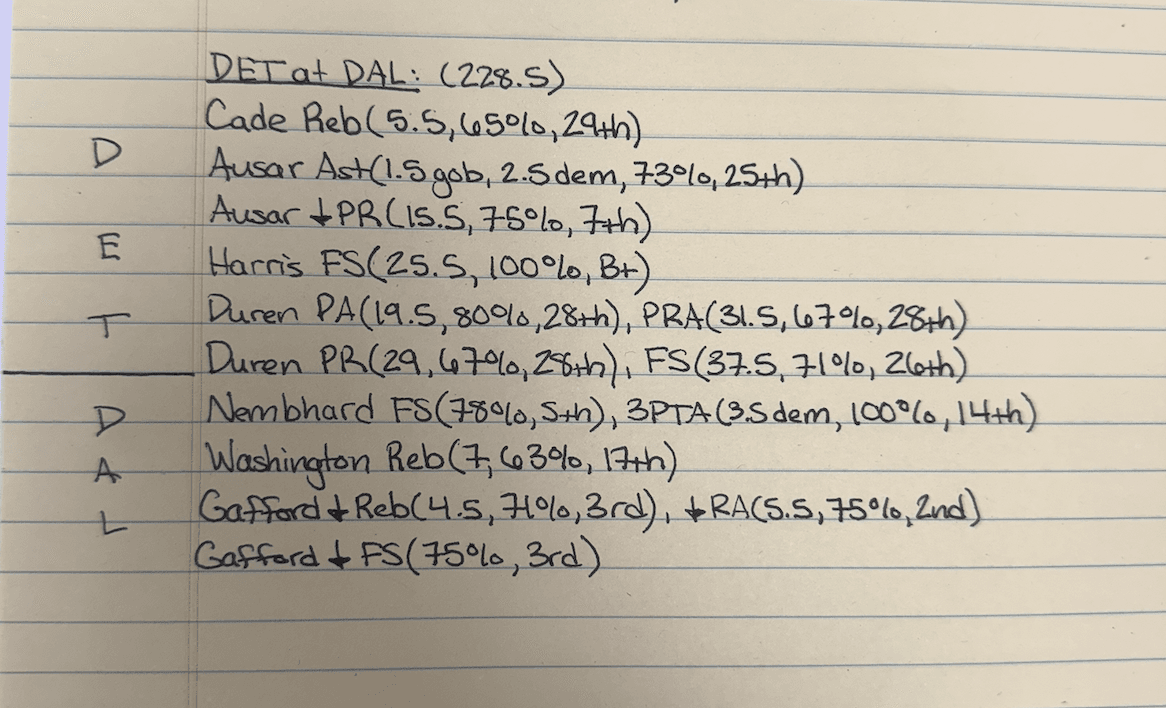 DET at DAL: (228.5)
Cade Reb (5.5, 65%, 29th)
D
Ausar Ast (1.5 gob, 2.5 dem, 73%, 25th)
Ausar ↓ PR (15.5, 75%, 7th)
E
Harris FS (25.5, 100%, B+)
T
Duren PA (19.5, 80%, 28th), PRA (31.5, 67%, 28th)
Duren PR (29, 67%, 28th), FS (37.5, 71%, 26th)
D
Nembhard FS (78%, 5th), 3PTA (3.5 dem, 100%, 14th)
A
Washington Reb (7, 63%, 17th)
L
Gafford ↓ Reb (4.5, 71%, 3rd), ↓ RA (5.5, 75%, 2nd)
Gafford ↓ FS (75%, 3rd)